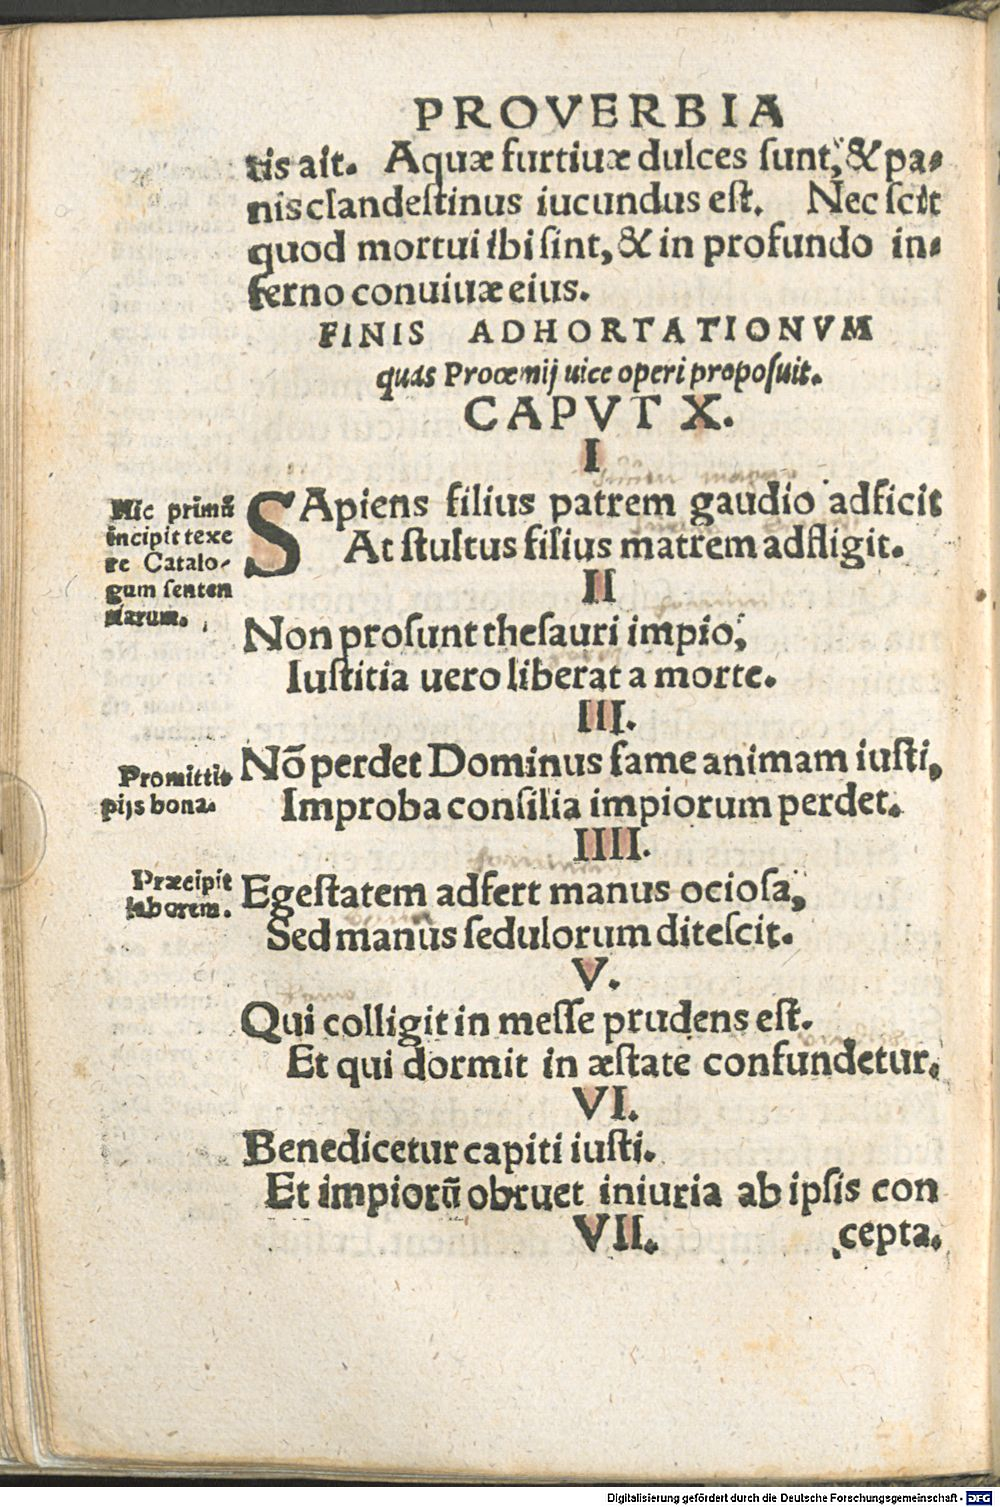 PROVERBIA
tis ait. Aquæ furtiuæ dulces sunt, & pa-
nis clandestinus iucundus est. Nec scit
quod mortui ibi sint, & in profundo in-
ferno conuiuæ eius.
FINIS ADHORTATIONVM
quas Procemij uice operi proposuit.
CAPVT X.
I
Hic primũ
incipit texe
re Catalo-
gum senten
tiarum.
SApiens filius patrem gaudio adficit
At stultus filius matrem adfligit.
II
Non prosunt thesauri impio,
Iustitia uero liberat a morte.
III.
Promittit
pijs bona.
Nõ perdet Dominus fame animam iusti,
Improba consilia impiorum perdet.
IIII.
Præcipit
laborem.
Egestatem adfert manus ociosa,
Sed manus sedulorum ditescit.
V.
Qui colligit in messe prudens est.
Et qui dormit in æstate confundetur.
VI.
Benedicetur capiti iusti.
Et impiorũ obruet iniuria ab ipsis con
VII. cepta.
Digitalisierung gefördert durch die Deutsche Forschungsgemeinschaft - DFG